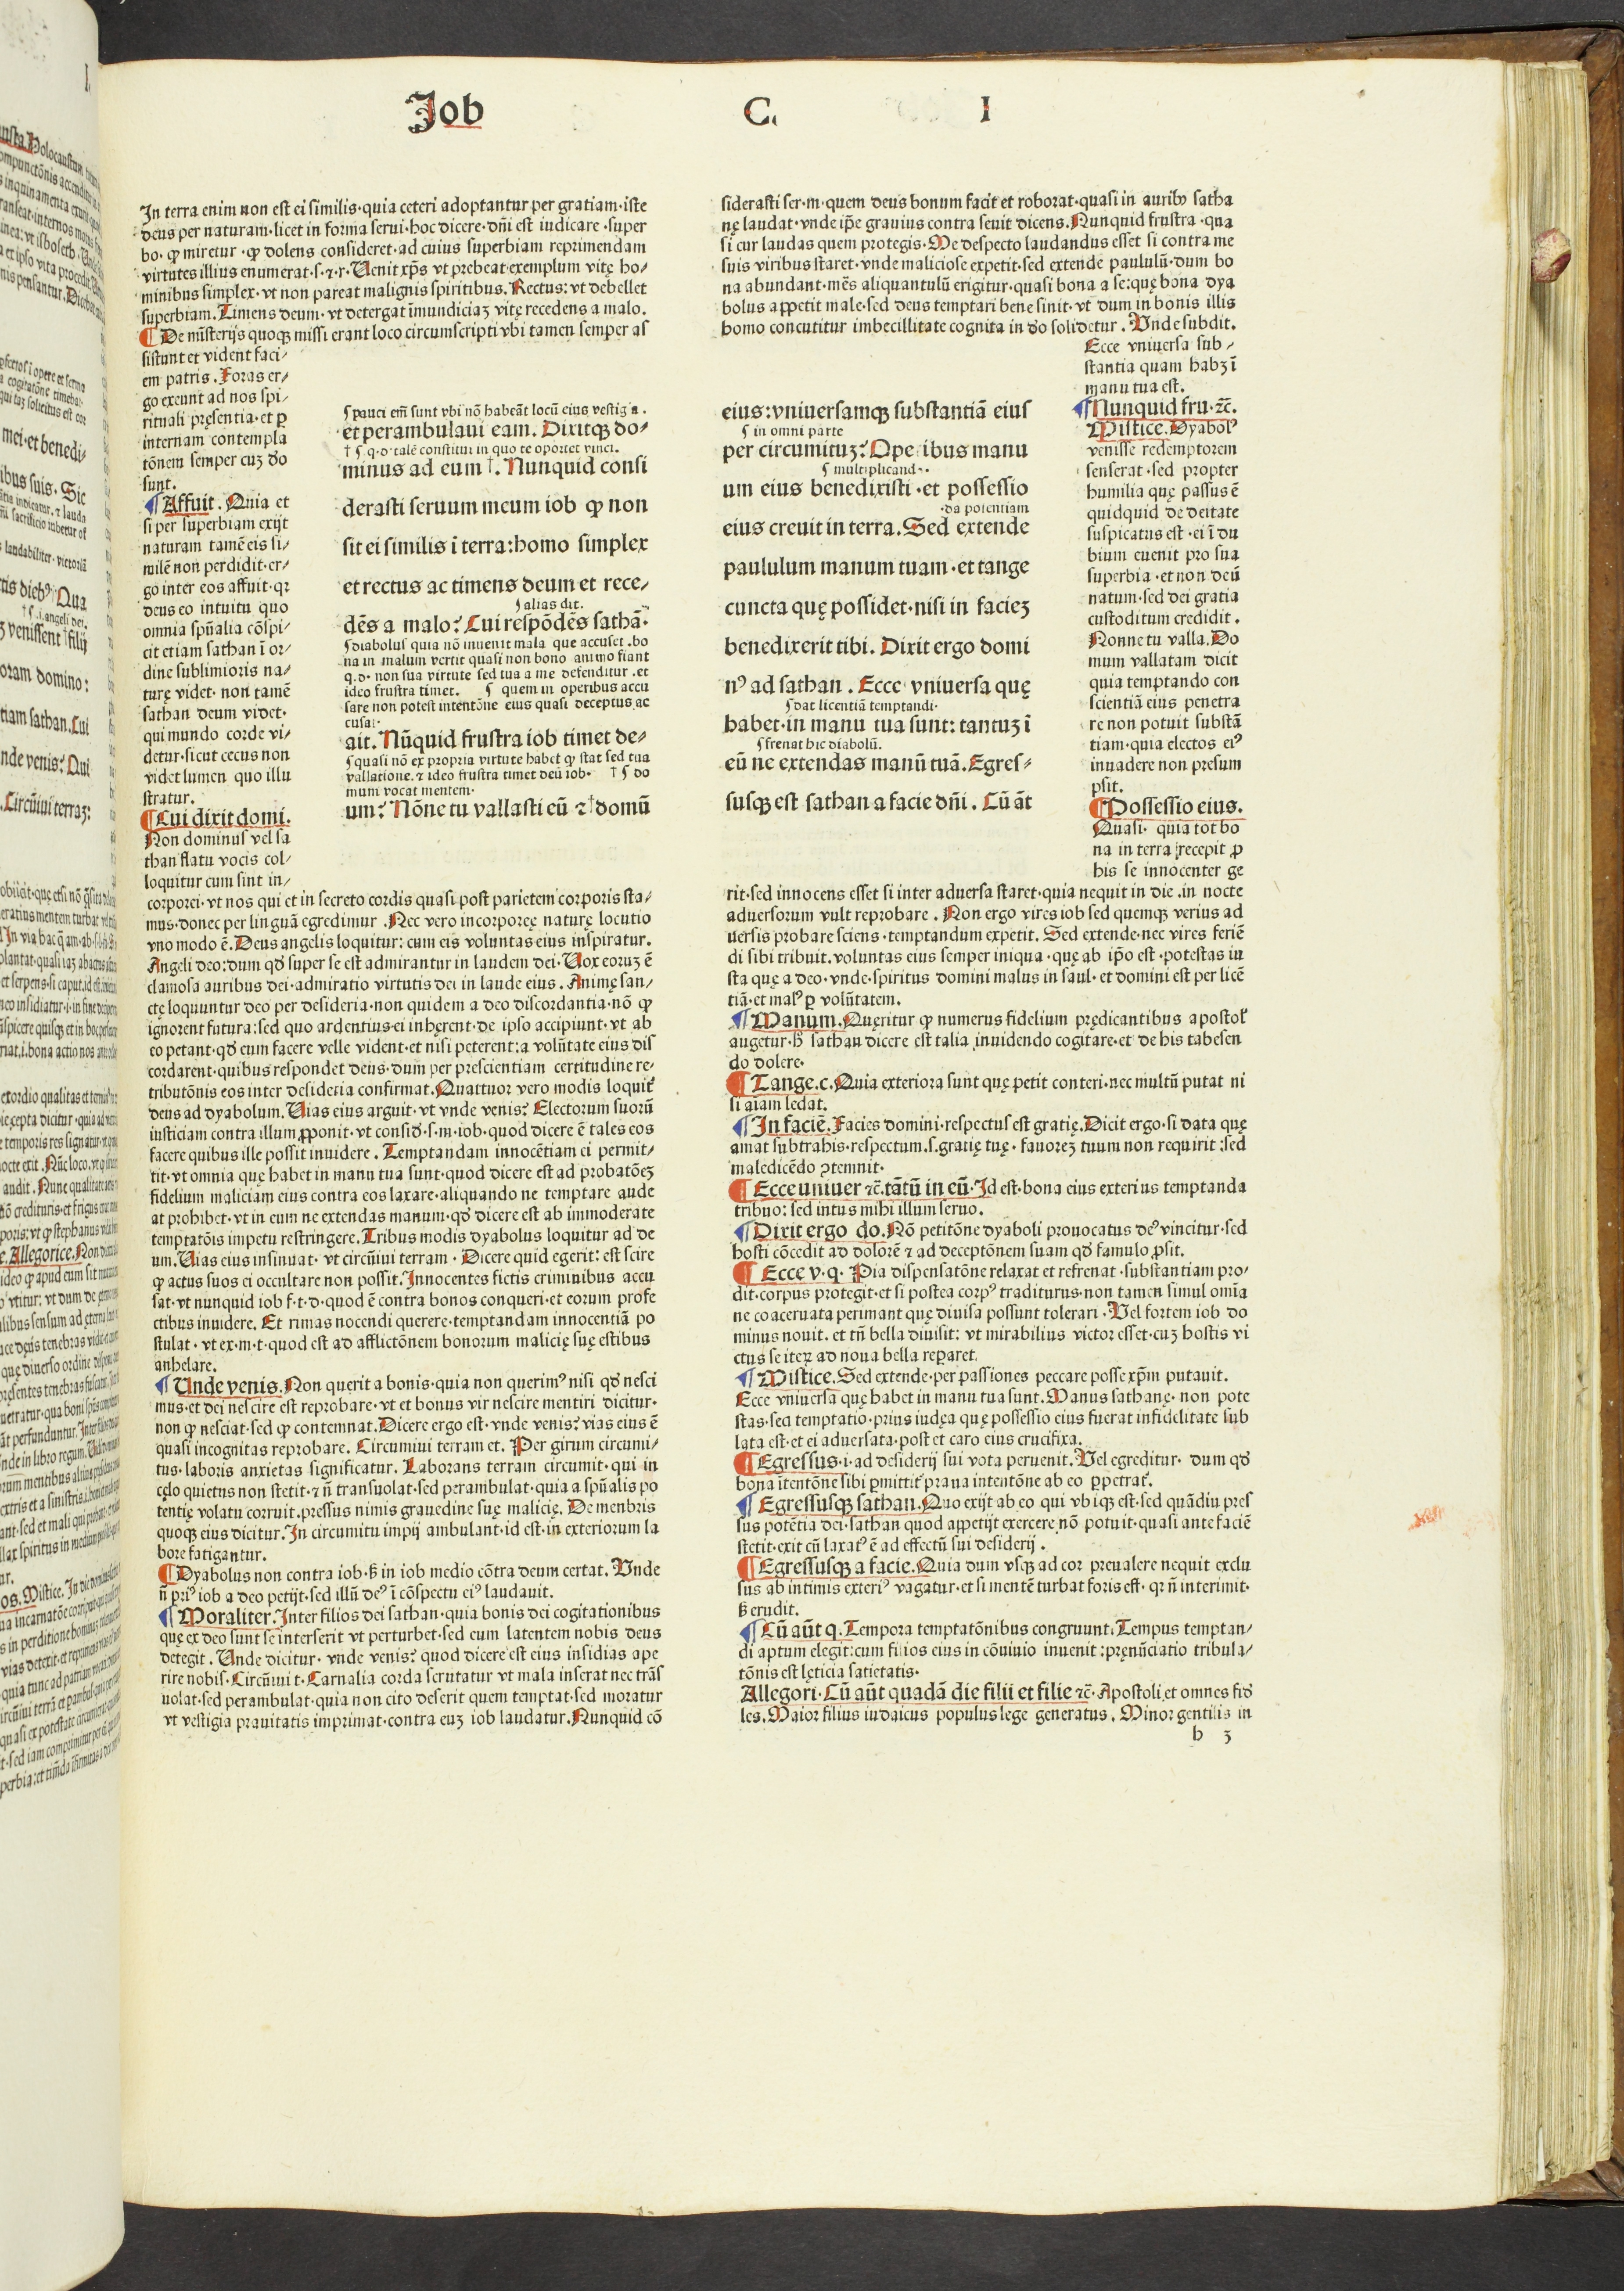 Job C. I
In terra enim non est ei similis·quia ceteri adoptantur per gratiam·iste
deus per naturam·licet in forma serui·hoc dicere·dñi est iudicare·super
bo·ꝙ miretur·ꝙ dolens consideret·ad cuius superbiam reprimendam
virtutes illius enumerat·s·⁊·r·Uenit xp̄s vt prebeat exemplum vitę ho/
minibus simplex·vt non pareat malignis spiritibus.Rectus:vt debellet
superbiam.Timens deum·vt detergat īmundiciaꝫ vitę recedens a malo.
¶De mīsterijs quoqꝫ missi erant loco circumscripti vbi tamen semper as
sistunt et vident faci/
em patris.Foras er/
go exeunt ad nos spi/
rituali pręsentia·et ꝑ
internam contempla
tōnem semper cuꝫ ꝺo
sunt.
¶Affuit.Quia et
si per superbiam exijt
naturam tamē eis si/
milē non perdidit·er/
go inter eos affuit·qꝛ
deus eo intuitu quo
omnia spūalia cōspi/
cit etiam sathan ī or/
dine sublimioris na/
turę videt·non tamē
sathan deum videt·
qui mundo corde vi/
detur·sicut cecus non
videt lumen quo illu
stratur.
¶Cui dixit domi.
Non dominus vel sa
than flatu vocis col/
loquitur cum sint in/
corporei·vt nos qui et in secreto cordis quasi post parietem corporis sta/
mus·donec per linguā egredimur.Nec vero incorporeę naturę locutio
vno modo ē.Deus angelis loquitur:cum eis voluntas eius inspiratur.
Angeli deo:dum qd̄ super se est admirantur in laudem dei·Uox eoruꝫ ē
clamosa auribus dei·admiratio virtutis dei in laude eius.Animę san/
ctę loquuntur deo per desideria·non quidem a deo discordantia·nō ꝙ
ignorent futura:sed quo ardentius ei inhęrent·de ipso accipiunt·vt ab
eo petant·qd̄ eum facere velle vident·et nisi peterent:a volūtate eius dis
cordarent·quibus respondet deus·dum per prescientiam certitudine re/
tributōnis eos inter desideria confirmat.Quattuor vero modis loquit̄
deus ad dyabolum.Uias eius arguit·vt vnde venis?Electorum suorū
iusticiam contra illum ꝓponit·vt consid̄·s·m·iob·quod dicere ē tales eos
facere quibus ille possit inuidere.Temptandam innocētiam ei permit/
tit·vt omnia quę habet in manu tua sunt·quod dicere est ad probatōeꝫ
fidelium maliciam eius contra eos laxare·aliquando ne temptare aude
at prohibet·vt in eum ne extendas manum·qd̄ dicere est ab immoderate
temptatōis impetu restringere.Tribus modis dyabolus loquitur ad de
um.Uias eius insinuat·vt circūiui terram·Dicere quid egerit:est scire
ꝙ actus suos ei occultare non possit.Innocentes fictis criminibus accu
sat·vt nunquid iob f·t·d·quod ē contra bonos conqueri·et eorum profe
ctibus inuidere.Et rimas nocendi querere·temptandam innocentiā po
stulat·vt ex·m·t·quod est ad afflictōnem bonorum malicię suę estibus
anhelare.
¶Unde venis.Non querit a bonis·quia non querimꝰ nisi qd̄ nesci
mus·et dei nescire est reprobare·vt et bonus vir nescire mentiri dicitur·
non ꝙ nesciat·sed ꝙ contemnat.Dicere ergo est·vnde venis?vias eius ē
quasi incognitas reprobare.Circumiui terram et.Per girum circumi/
tus·laboris anxietas significatur.Laborans terram circumit·qui in
cęlo quietus non stetit·⁊ n̄ transuolat·sed perambulat·quia a spūalis po
tentię volatu corruit·pressus nimis grauedine suę malicię.De menbris
quoqꝫ eius dicitur.In circumitu impij ambulant·id est·in exteriorum la
bore fatigantur.
¶Dyabolus non contra iob·ꝸ in iob medio cōtra deum certat.Unde
n̄ priꝰ iob a deo petijt·sed illū deꝰ ī cōspectu eiꝰ laudauit.
¶Moraliter.Inter filios dei sathan·quia bonis dei cogitationibus
quę ex deo sunt se interserit vt perturbet·sed eum latentem nobis deus
detegit.Unde dicitur·vnde venis?quod dicere est eius insidias ape
rire nobis·Circūiui t·Carnalia corda scrutatur vt mala inserat nec trās
uolat·sed perambulat·quia non cito deserit quem temptat·sed moratur
vt vestigia prauitatis imprimat·contra euꝫ iob laudatur.Nunquid cō
ꝭ pauci em̄ sunt vbi nō habeāt locū eius vestigia.
et perambulaui eam.Dixitqꝫ do/
† ꝭ q·d·talē constitui in quo te oportet vinci.
minus ad eum†.Nunquid consi
derasti seruum meum iob ꝙ non
sit ei similis ī terra:homo simplex
et rectus ac timens deum et rece/
ꝭ alias dit.
dēs a malo?Cui respōdēs sathā·
ꝭ diabolus quia nō inuenit mala que accuset·bo
na in malum vertit quasi non bono animo fiant
q·d·non sua virtute sed tua a me defenditur·et
ideo frustra timet. ꝭ quem in operibus accu
sare non potest intentōne eius quasi deceptus ac
cusat·
ait.Nūquid frustra iob timet de/
ꝭ quasi nō ex propria virtute habet ꝙ stat sed tua
vallatione·⁊ ideo frustra timet deū iob· † ꝭ do
mum vocat mentem·
um?Nōne tu vallasti eū ⁊†domū
siderasti ser·m·quem deus bonum facit et roborat·quasi in aurib𝔷 satha
nę laudat·vnde ip̄e grauius contra seuit dicens.Nunquid frustra·qua
si cur laudas quem protegis·Me despecto laudandus esset si contra me
suis viribus staret·vnde maliciose expetit·sed extende paululū·dum bo
na abundant·mēs aliquantulū erigitur·quasi bona a se:quę bona dya
bolus appetit male·sed deus temptari bene sinit·vt dum in bonis illis
homo concutitur imbecillitate cognita in ꝺo solidetur.Unde subdit.
Ecce vniuersa sub/
stantia quam habꝫ ī
manu tua est.
¶Nunquid fru·⁊c̄.
Mistice.Dyabolꝰ
venisse redemptorem
senserat·sed propter
humilia quę passus ē
quidquid de deitate
suspicatus est·ei ī du
bium euenit pro sua
superbia·et non deū
natum·sed dei gratia
custoditum credidit.
Nonne tu valla.Do
mum vallatam dicit
quia temptando con
scientiā eius penetra
re non potuit substā
tiam·quia electos eiꝰ
inuadere non presum
psit.
¶Possessio eius.
Quasi·quia tot bo
na in terra recepit ꝓ
his se innocenter ge
eius:vniuersamqꝫ substantiā eius
ꝭ in omni parte
per circumituꝫ?Ope ibus manu
ꝭ multiplicand··
um eius benedixisti·et possessio
·da potentiam
eius creuit in terra.Sed extende
paululum manum tuam·et tange
cuncta quę possidet·nisi in facieꝫ
benedixerit tibi.Dixit ergo domi
nꝰ ad sathan.Ecce vniuersa quę
ꝭ dat licentiā temptandi·
habet·in manu tua sunt:tantuꝫ ī
ꝭ frenat hic diabolū.
eū ne extendas manū tuā.Egres/
susqꝫ est sathan a facie dñi.Cū āt
rit·sed innocens esset si inter aduersa staret·quia nequit in die·in nocte
aduersorum vult reprobare.Non ergo vires iob sed quemqꝫ verius ad
uersis probare sciens·temptandum expetit.Sed extende·nec vires feriē
di sibi tribuit·voluntas eius semper iniqua·quę ab ip̄o est·potestas iu
sta quę a deo·vnde·spiritus domini malus in saul·et domini est per licē
tiā·et malꝰ ꝑ volūtatem.
¶Manum.Quęritur ꝙ numerus fidelium prędicantibus apostol̄
augetur·ħ sathan dicere est talia inuidendo cogitare·et de his tabesen
do dolere·
¶Tange.c.Quia exteriora sunt quę petit conteri·nec multū putat ni
si aīam ledat.
¶In faciē.Facies domini·respectus est gratię.Dicit ergo·si data quę
amat subtrahis·respectum·s·gratię tuę·fauoreꝫ tuum non requirit:sed
maledicēdo ꝯtemnit·
¶Ecce uniuer ⁊c̄.tātū in eū·Id est·bona eius exterius temptanda
tribuo:sed intus mihi illum seruo.
¶Dixit ergo do.Nō petitōne dyaboli prouocatus deꝰ vincitur·sed
hosti cōcedit ad dolorē ⁊ ad deceptōnem suam qd̄ famulo ꝓsit.
¶Ecce v·q·Pia dispensatōne relaxat et refrenat·substantiam pro/
dit·corpus protegit·et si postea corpꝰ traditurus·non tamen simul om̄ia
ne coaceruata perimant quę diuisa possunt tolerari·Uel fortem iob do
minus nouit·et tn̄ bella diuisit:vt mirabilius victor esset·cuꝫ hostis vi
ctus se iteꝝ ad noua bella reparet.
¶Mistice.Sed extende·per passiones peccare posse xp̄m putauit.
Ecce vniuersa quę habet in manu tua sunt.Manus sathanę·non pote
stas·sed temptatio·prius iudęa quę possessio eius fuerat infidelitate sub
lata est·et ei aduersata·post et caro eius crucifixa.
¶Egressus·i·ad desiderij sui vota peruenit.Uel egreditur·dum qd̄
bona ītentōne sibi ꝑmittit̄ praua intentōne ab eo ꝑpetrat̄.
¶Egressusqꝫ sathan.Quo exijt ab eo qui vbiqꝫ est·sed quādiu pres
sus potētia dei·sathan quod appetijt exercere nō potuit·quasi ante faciē
stetit·exit cū laxatꝰ ē ad effectū sui desiderij.
¶Egressusqꝫ a facie.Quia dum vsqꝫ ad cor preualere nequit exclu
sus ab intimis exteriꝰ vagatur·et si mentē turbat foris eſt·qꝛ n̄ interimit·
ꝸ erudit.
¶Cū aūt q.Tempora temptatōnibus congruunt.Tempus temptan/
di aptum elegit:cum filios eius in cōuiuio inuenit:prenūciatio tribula/
tōnis est lęticia satietatis·
Allegori·Cū aūt quadā die filii et filie ⁊c̄·Apostoli et omnes fid̄
les.Maior filius iudaicus populus lege generatus.Minor gentilis in
b 3